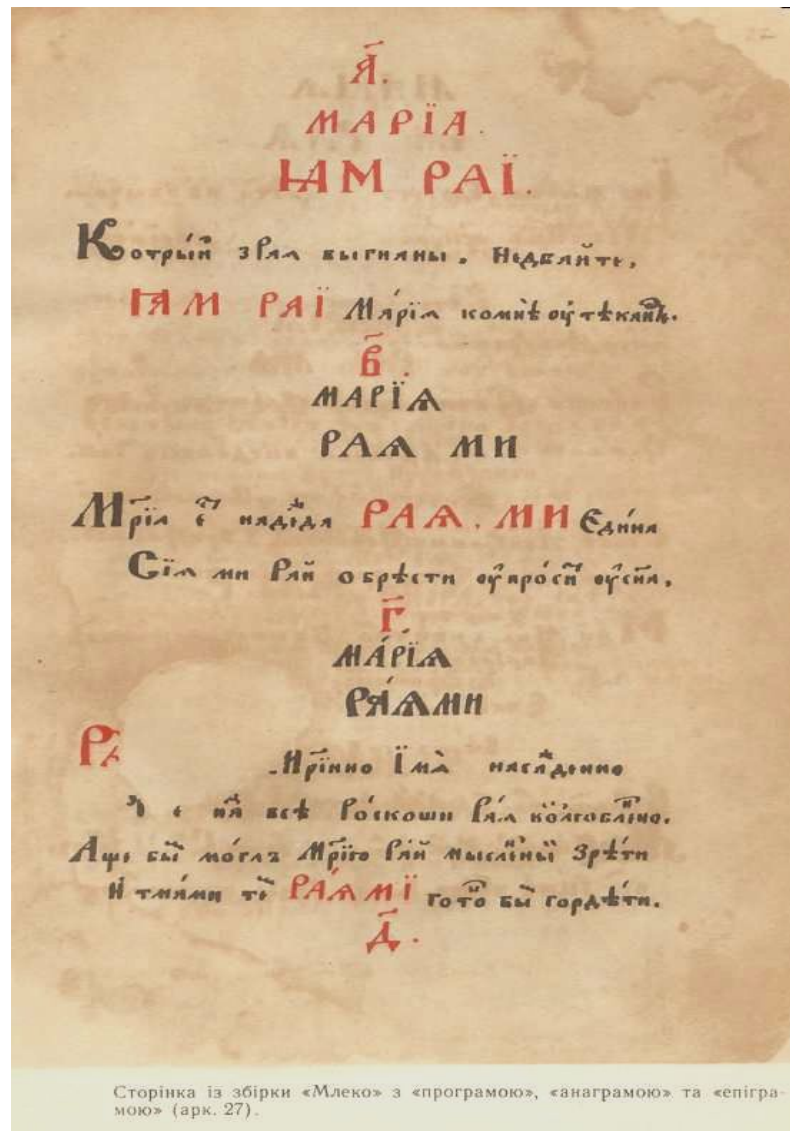 А҃.
МАРЇА.
ꙖМ РАЇ.
Которы́й з Раꙗ выгнаны. Недбайте,
ꙖМ РАЇ Ма́рїꙗ комнѣ оутѣкайте.
В҃.
МАРЇѦ
РАѦ МИ
Мр҃їꙗ є҆ст надѣжда РАѦ. МИ Єди́на
Сїꙗ ми Рай обрѣсти оупро́сит оу Сн҃а.
Г҃.
МА́РЇѦ
РА́ѦМИ
Мр҃їинно Їмѧ̀ наслажденно
на́д всѣ Ро́скоши Ра́ꙗ
Аще бы́ мо́глъ Мр҃їю Ра́й мы́сленный Зрѣ́ти
И҆ тмами те́х РА́ѦМЇ гото́в бы́ гордѣ́ти.
Д҃.
Сторінка із збірки «Млеко» з «програмою», «анаграмою» та «епігра-
мою» (арк. 27).